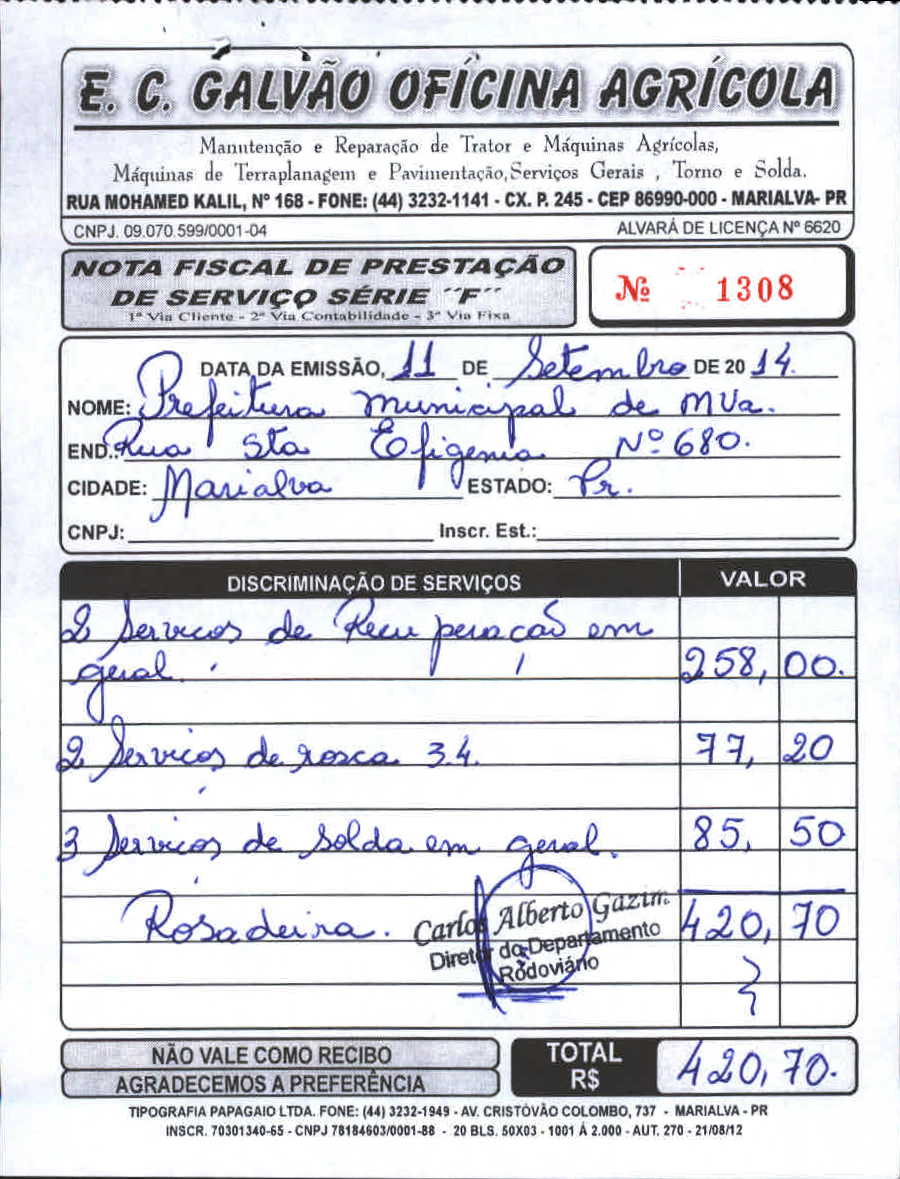 E. C. GALVÃO OFÍCINA AGRÍCOLA
Manutenção e Reparação de Trator e Máquinas Agrícolas,
Máquinas de Terraplanagem e Pavimentação,Serviços Gerais , Torno e Solda.
RUA MOHAMED KALIL, Nº 168 - FONE: (44) 3232-1141 - CX. P. 245 - CEP 86990-000 - MARIALVA- PR
CNPJ. 09.070.599/0001-04 ALVARÁ DE LICENÇA Nº 6620
NOTA FISCAL DE PRESTAÇÃO
DE SERVIÇO SÉRIE "F"
1ª Via Cliente - 2ª Via Contabilidade - 3ª Via Fixa
Nº 1308
DATA DA EMISSÃO, 11 DE Setembro DE 20 14.
NOME: Prefeitura municipal de MVa.
END.: Rua Sta Efigenia Nº 680.
CIDADE: Marialva ESTADO: Pr.
CNPJ: Inscr. Est.:
DISCRIMINAÇÃO DE SERVIÇOS VALOR
2 Serviços de Recuperação em
geral. 258,00.
2 Serviços de rosca 3.4. 77,20
3 Serviços de Solda em geral. 85,50
Rosadeira. 420,70
Carlos Alberto Gazim
Diretor do Departamento
Rodoviário
NÃO VALE COMO RECIBO
AGRADECEMOS A PREFERÊNCIA
TOTAL R$ 420,70.
TIPOGRAFIA PAPAGAIO LTDA. FONE: (44) 3232-1949 - AV. CRISTÓVÃO COLOMBO, 737 - MARIALVA - PR
INSCR. 70301340-65 - CNPJ 78184603/0001-88 - 20 BLS. 50X03 - 1001 Á 2.000 - AUT. 270 - 21/08/12